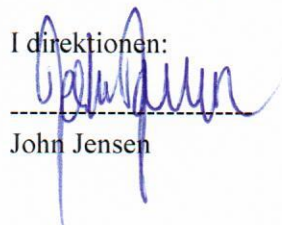 I direktionen:
John Jensen